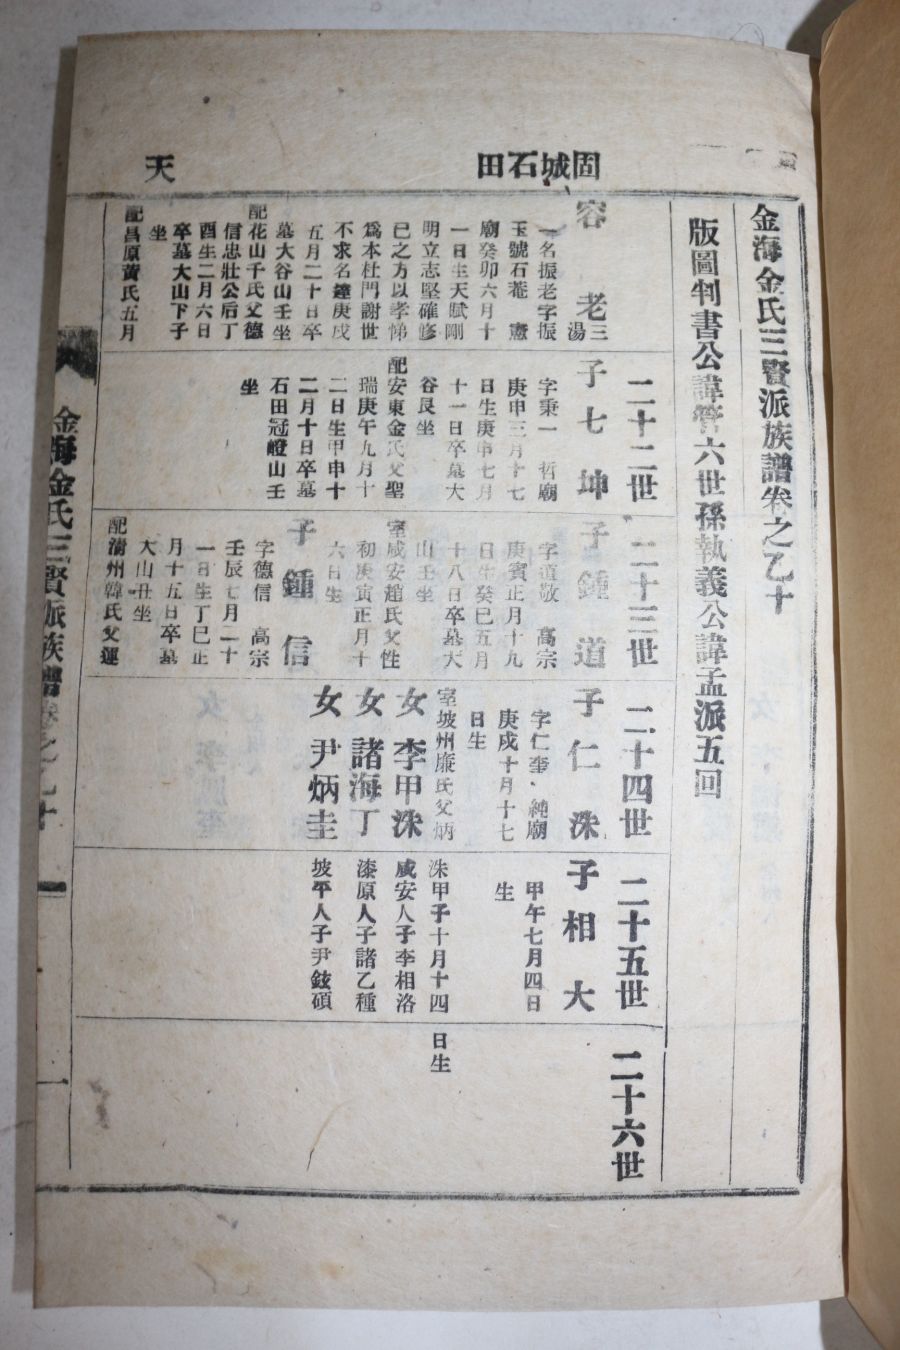 固城石田
天
金海金氏三賢派族譜卷之乙十
版圖判書公諱管六世孫執義公諱孟派五回
容老
三湯
一名振老字振
玉號石菴 憲
廟癸卯六月十
一日生天賦剛
明立志堅確修
已之方以孝悌
爲本杜門謝世
不求名鐘庚戌
五月二十日卒
墓大谷山壬坐
配花山千氏父德
信忠壯公后丁
酉生二月六日
卒墓大山下子
坐
配昌原黃氏五月
二十二世
子七坤
字秉一 哲廟
庚申三月十七
日生庚申七月
十一日卒墓大
谷艮坐
配安東金氏父聖
瑞庚午九月十
二日生甲申十
二月十日卒墓
石田冠嶝山壬
坐
二十三世
子鍾道
字道敬 高宗
庚寅正月十九
日生癸巳五月
十八日卒墓大
山壬坐
室咸安趙氏父性
初庚寅正月十
六日生
子鍾信
字德信 高宗
壬辰七月二十
一日生丁巳正
月十五日卒墓
大山丑坐
配淸州韓氏父運
二十四世
子仁洙
字仁奎 純廟
庚戌十月十七
日生
室坡州廉氏父炳
女李甲洙
女諸海丁
女尹炳圭
二十五世
子相大
甲午七月四日
生
洙甲子十月十四
日生
咸安人子李相洛
漆原人子諸乙種
坡平人子尹鉉碩
二十六世
金海金氏三賢派族譜卷之乙十
一